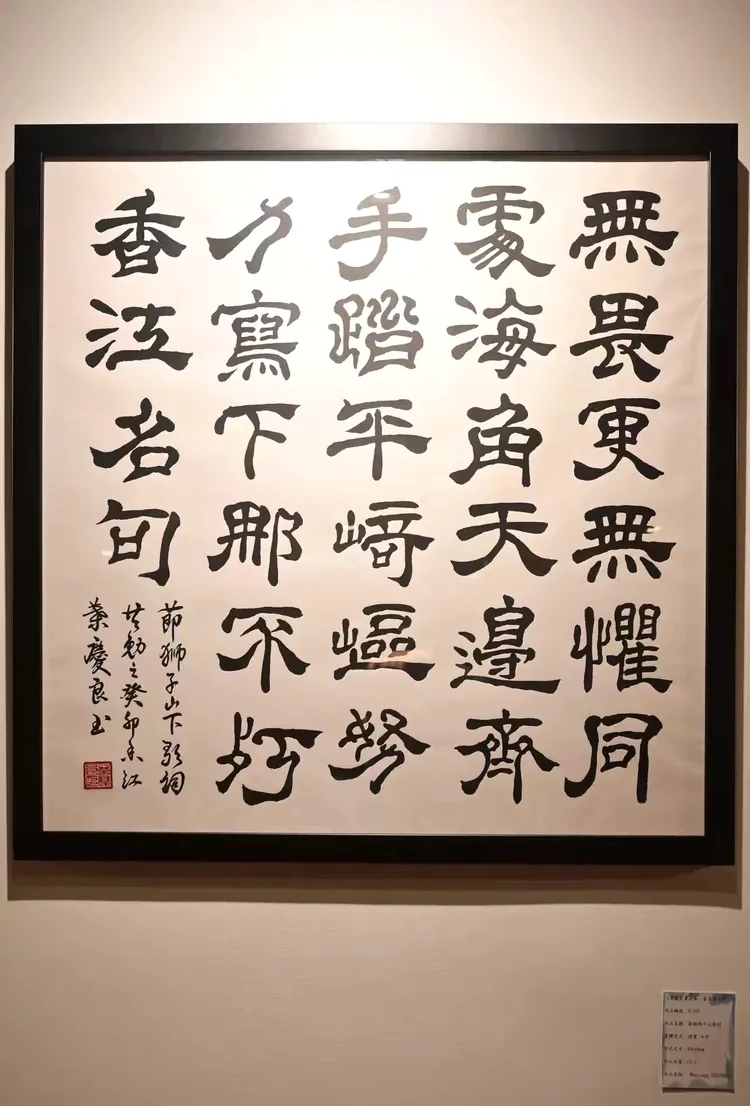 無畏更無懼同
處海角天邊齊
手踏平崎嶇努
力寫下那不朽
香江名句
節獅子山下歌詞
共勉之癸卯香江
葉慶良书